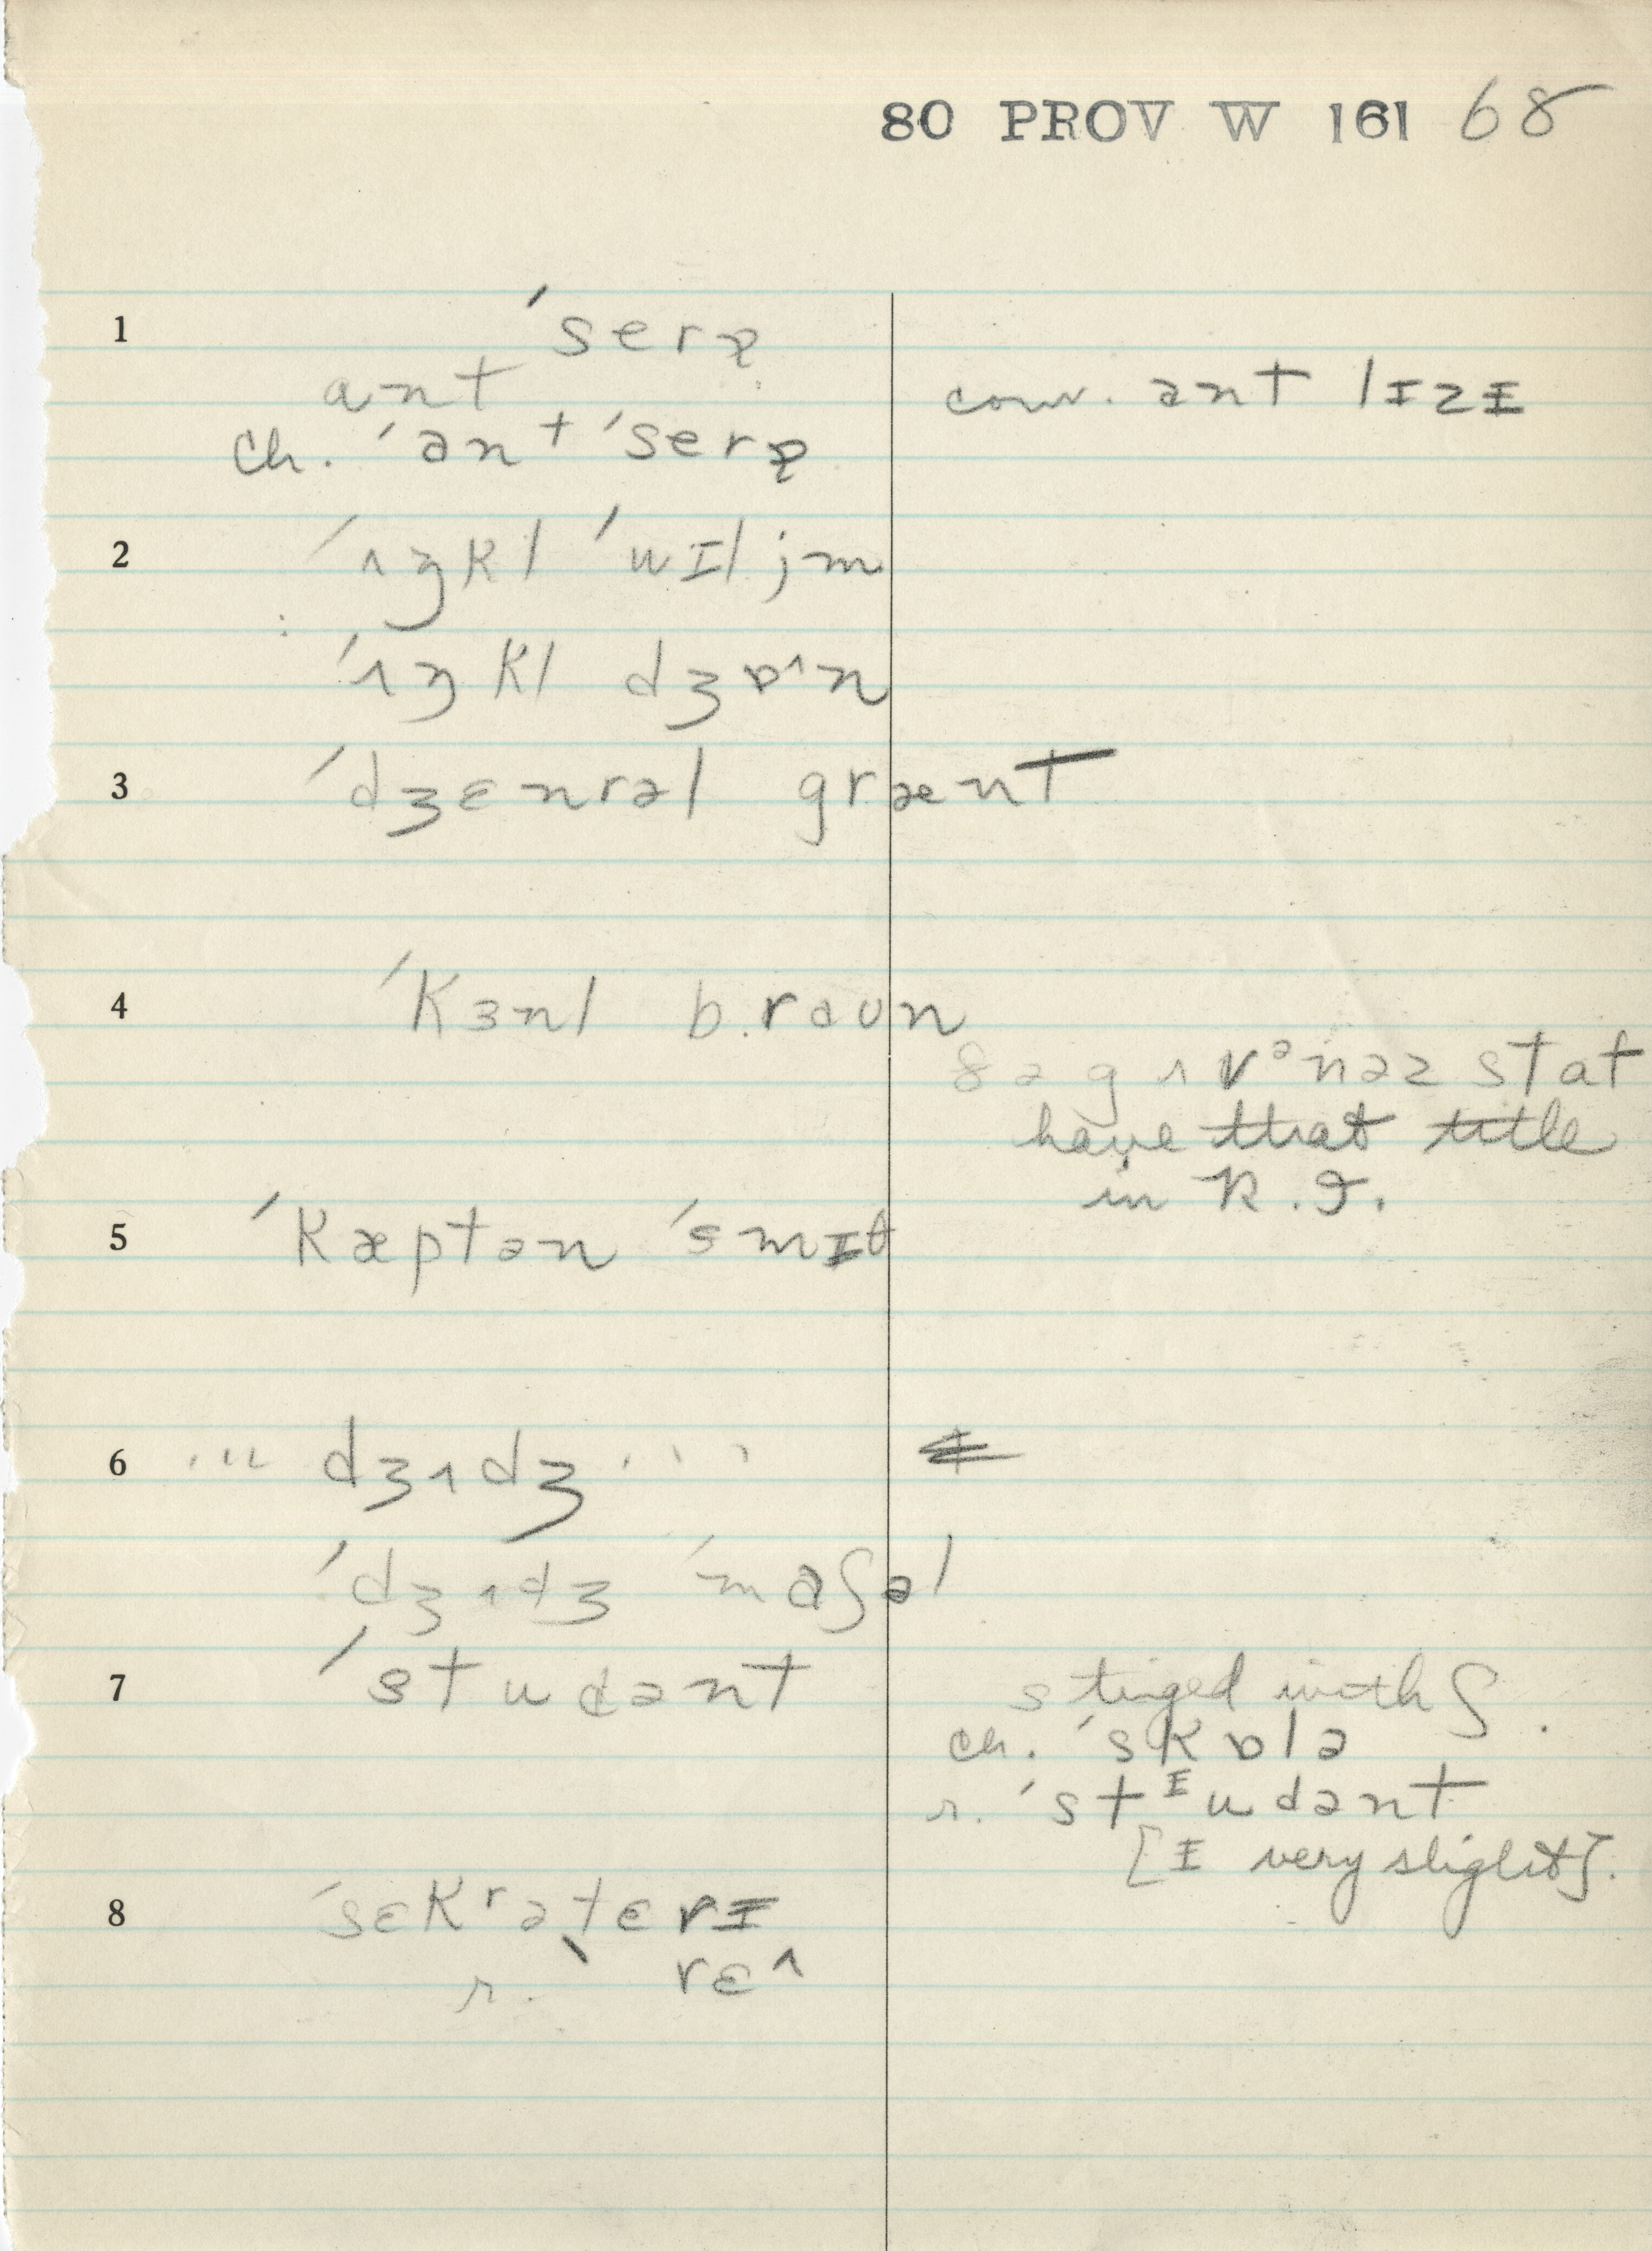 80 PROV W 161 68
1 ˈserə
ant
cow. ant lɪzɪ
ch. ˈan + ˈserə
2 ˈʌŋkl ˈwɪljm
ˈʌŋkl dʒɒˈn
3 ˈdʒɛnrəl grænt
4 ˈkɜnl b.raun
ðə gʌvᵊnəz staf
have that title
in R.I.
5 ˈkæptən ˈsmɪθ
6 ... dʒʌdʒ ...
ˈdʒʌdʒ ˈmaʃəl
7 ˈstudənt
s tinged with ʃ.
ch. ˈskɒlə
r. ˈstᶦudənt
[ɪ very slight].
8 ˈsɛkʳəˌtɛrɪ
r. rɛ^